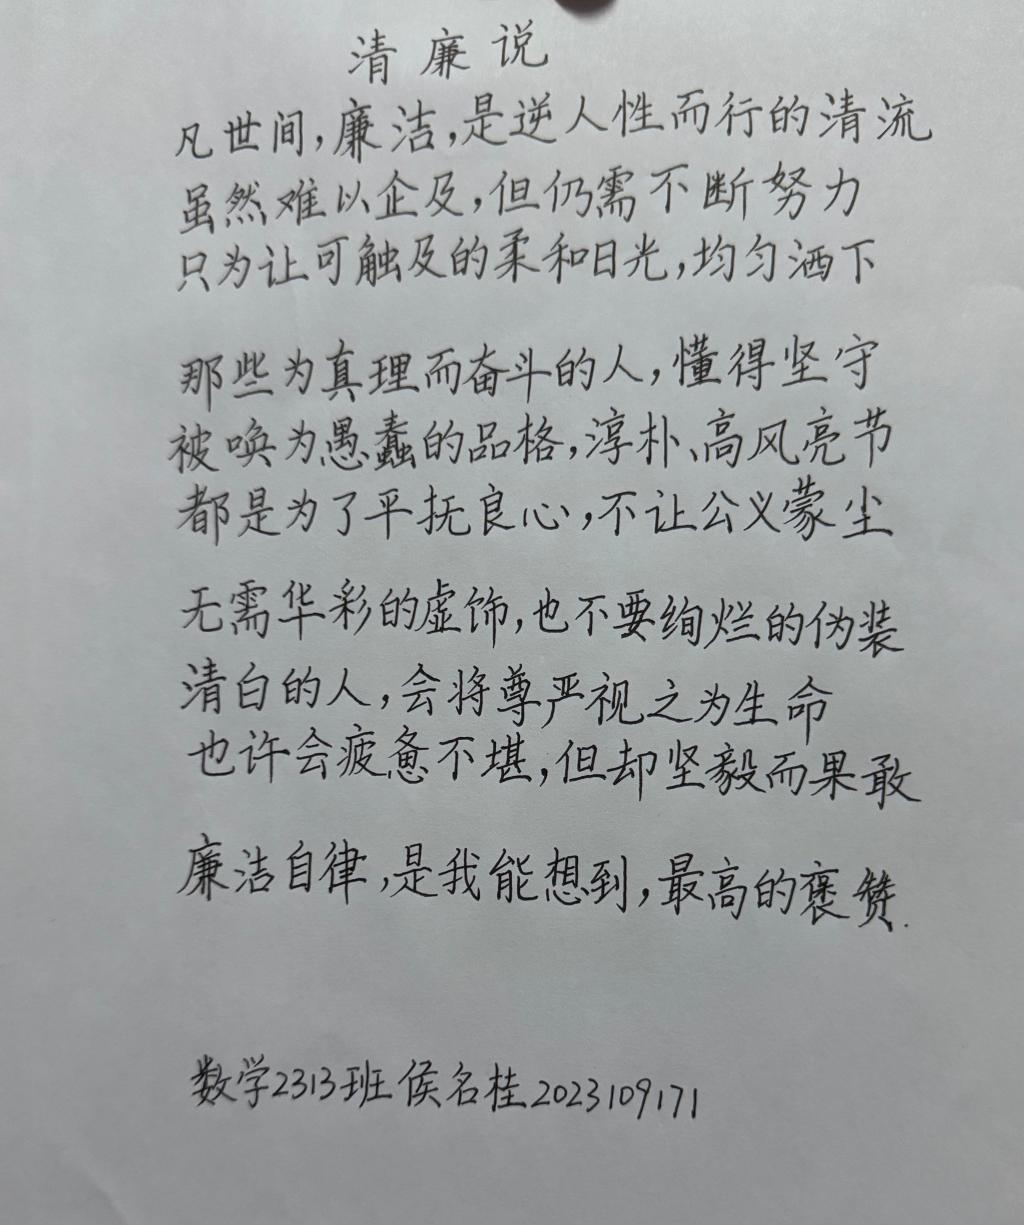 清廉说
凡世间,廉洁,是逆人性而行的清流
虽然难以企及,但仍需不断努力
只为让可触及的柔和日光,均匀洒下
那些为真理而奋斗的人,懂得坚守
被唤为愚蠢的品格,淳朴、高风亮节
都是为了平抚良心,不让公义蒙尘
无需华彩的虚饰,也不要绚烂的伪装
清白的人,会将尊严视之为生命
也许会疲惫不堪,但却坚毅而果敢
廉洁自律,是我能想到,最高的褒赞.
数学2313班侯名桂2023109171